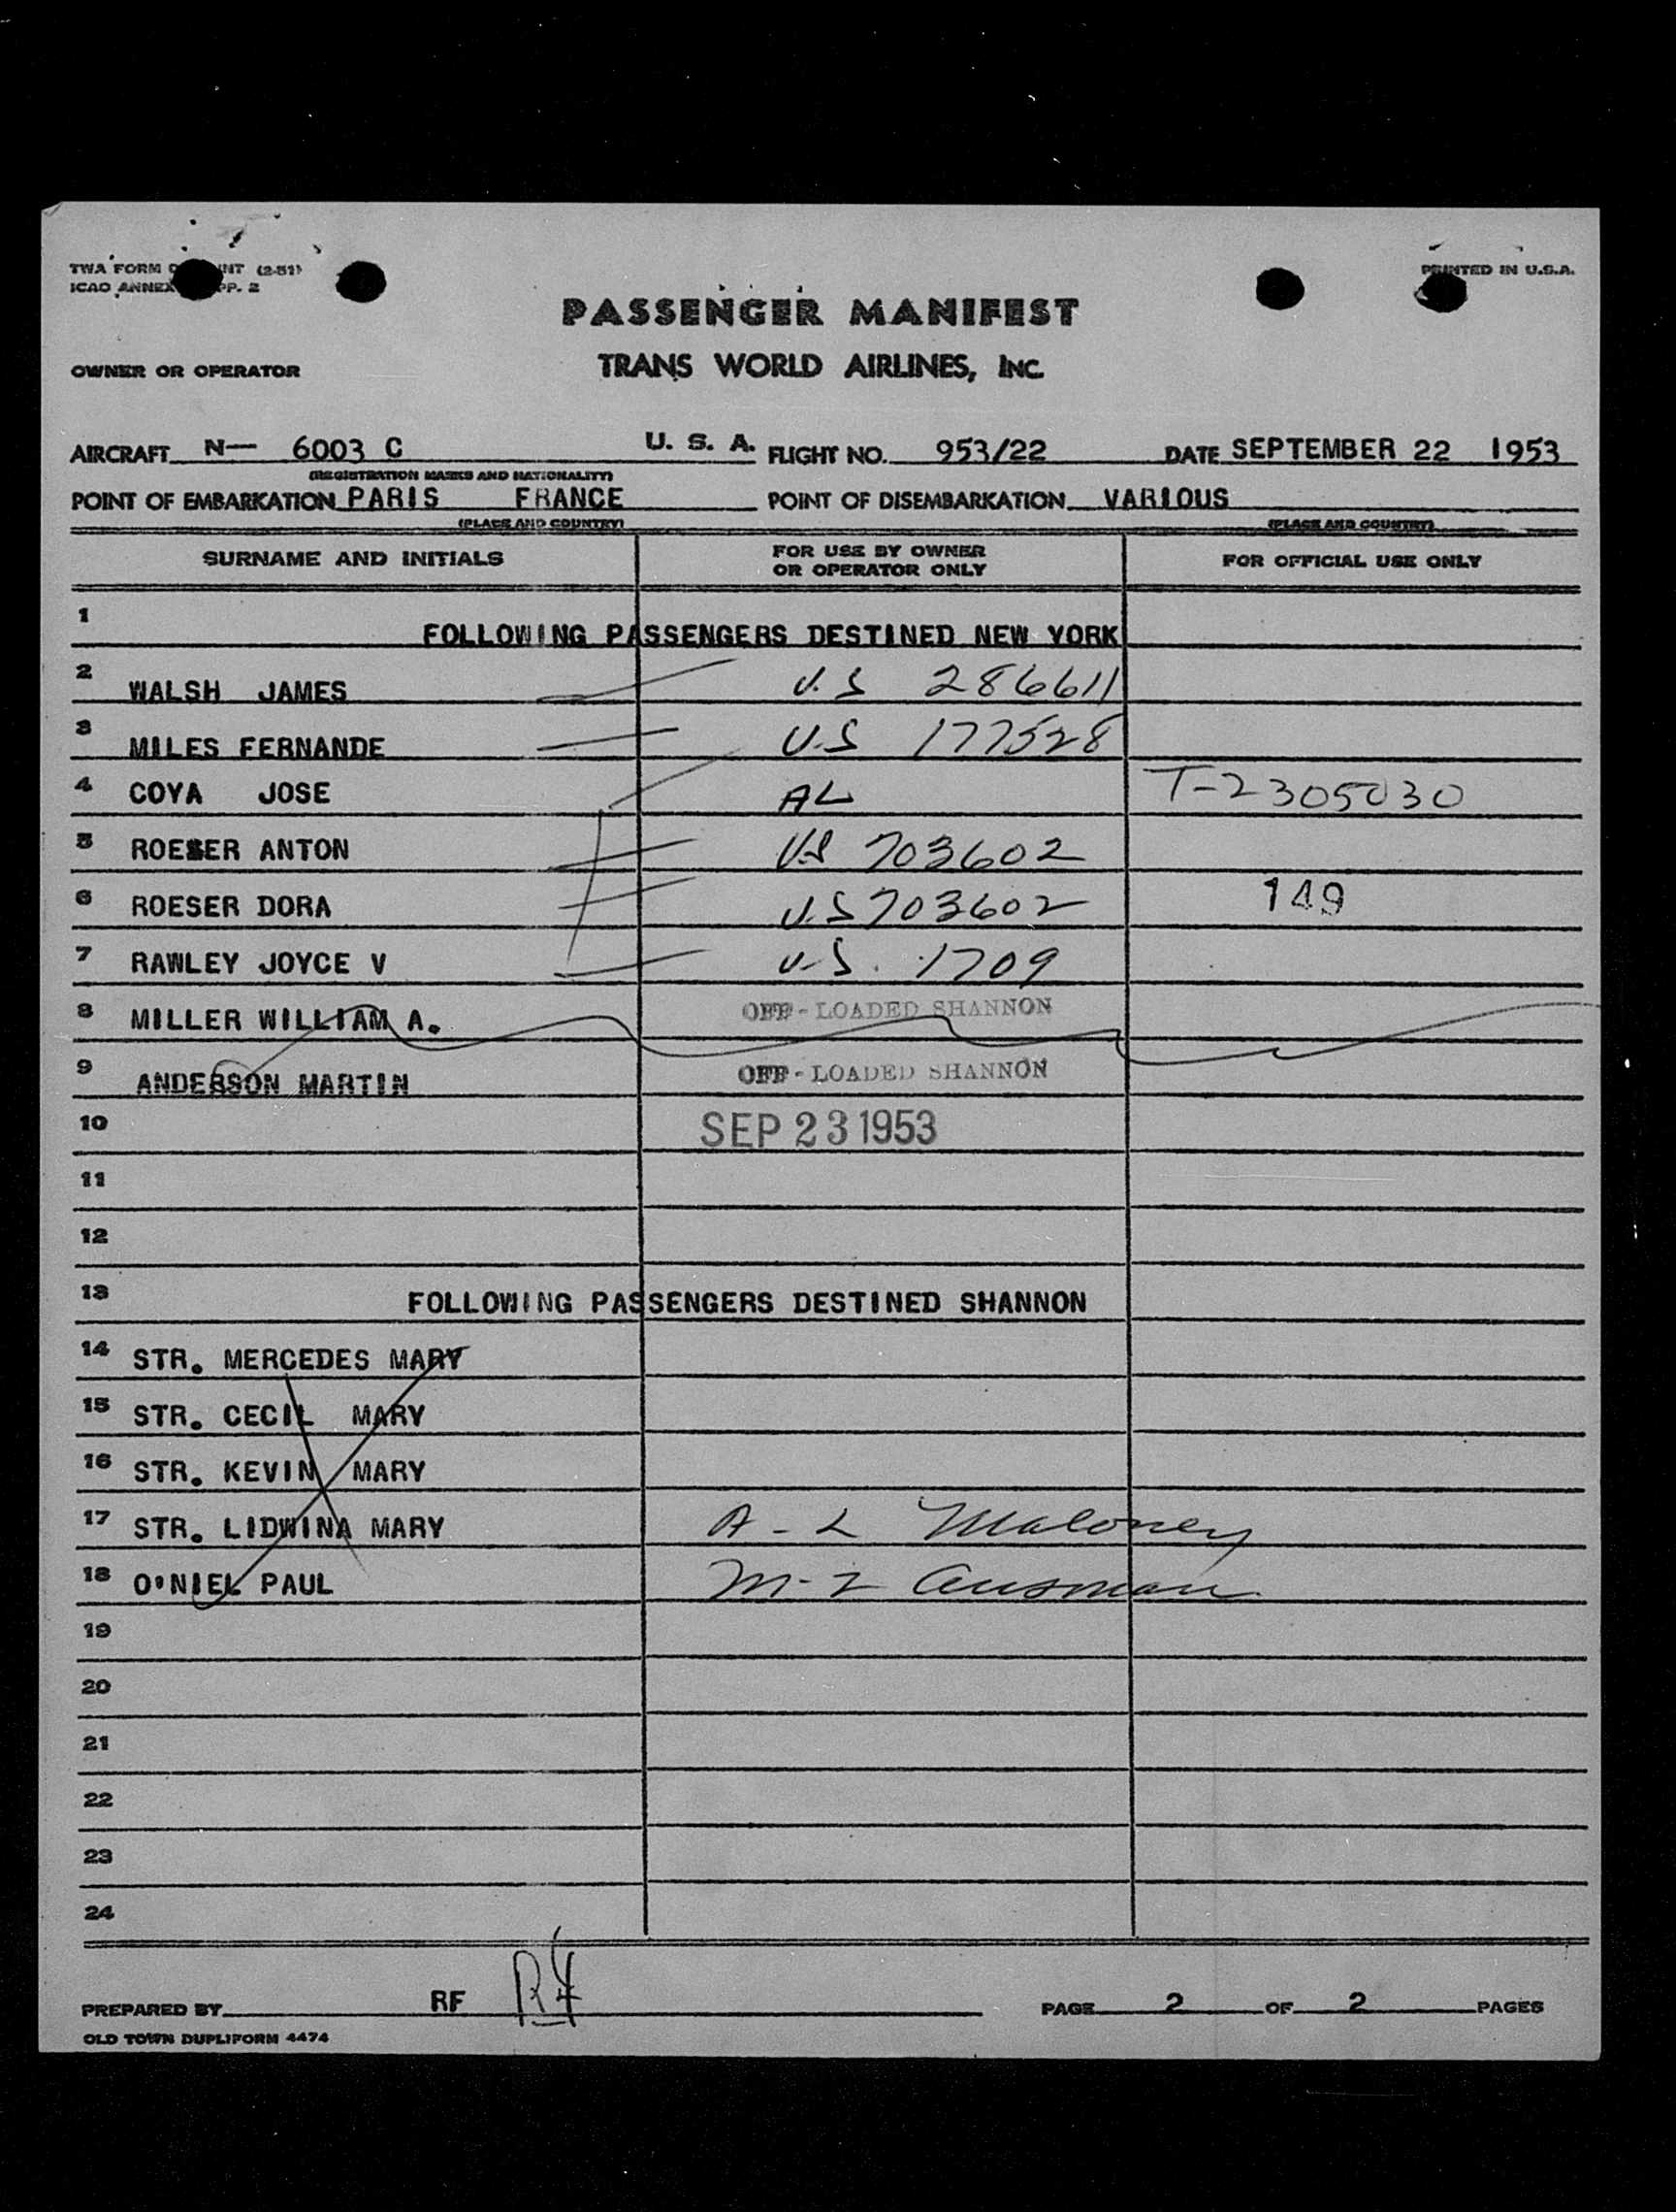 TWA FORM INT (2-51) PRINTED IN U.S.A.
ICAO ANNEX PP. 2
PASSENGER MANIFEST
OWNER OR OPERATOR TRANS WORLD AIRLINES, INC.
AIRCRAFT N— 6003 C U. S. A. FLIGHT NO. 953/22 DATE SEPTEMBER 22 1953
(REGISTRATION MARKS AND NATIONALITY)
POINT OF EMBARKATION PARIS FRANCE POINT OF DISEMBARKATION VARIOUS
(PLACE AND COUNTRY) (PLACE AND COUNTRY)
SURNAME AND INITIALS FOR USE BY OWNER OR OPERATOR ONLY FOR OFFICIAL USE ONLY
1 FOLLOWING PASSENGERS DESTINED NEW YORK
2 WALSH JAMES U.S 286611
3 MILES FERNANDE U.S 177528
4 COYA JOSE AL T-2305030
5 ROESER ANTON U.S 703602
6 ROESER DORA U.S 703602 149
7 RAWLEY JOYCE V U.S. 1709
8 MILLER WILLIAM A. OFF-LOADED SHANNON
9 ANDERSON MARTIN OFF-LOADED SHANNON
10 SEP 23 1953
11
12
13 FOLLOWING PASSENGERS DESTINED SHANNON
14 STR. MERCEDES MARY
15 STR. CECIL MARY
16 STR. KEVIN MARY
17 STR. LIDWINA MARY A-L Maloney
18 O'NIEL PAUL M-L Ausman
19
20
21
22
23
24
PREPARED BY RF RF PAGE 2 OF 2 PAGES
OLD TOWN DUPLIFORM 4474